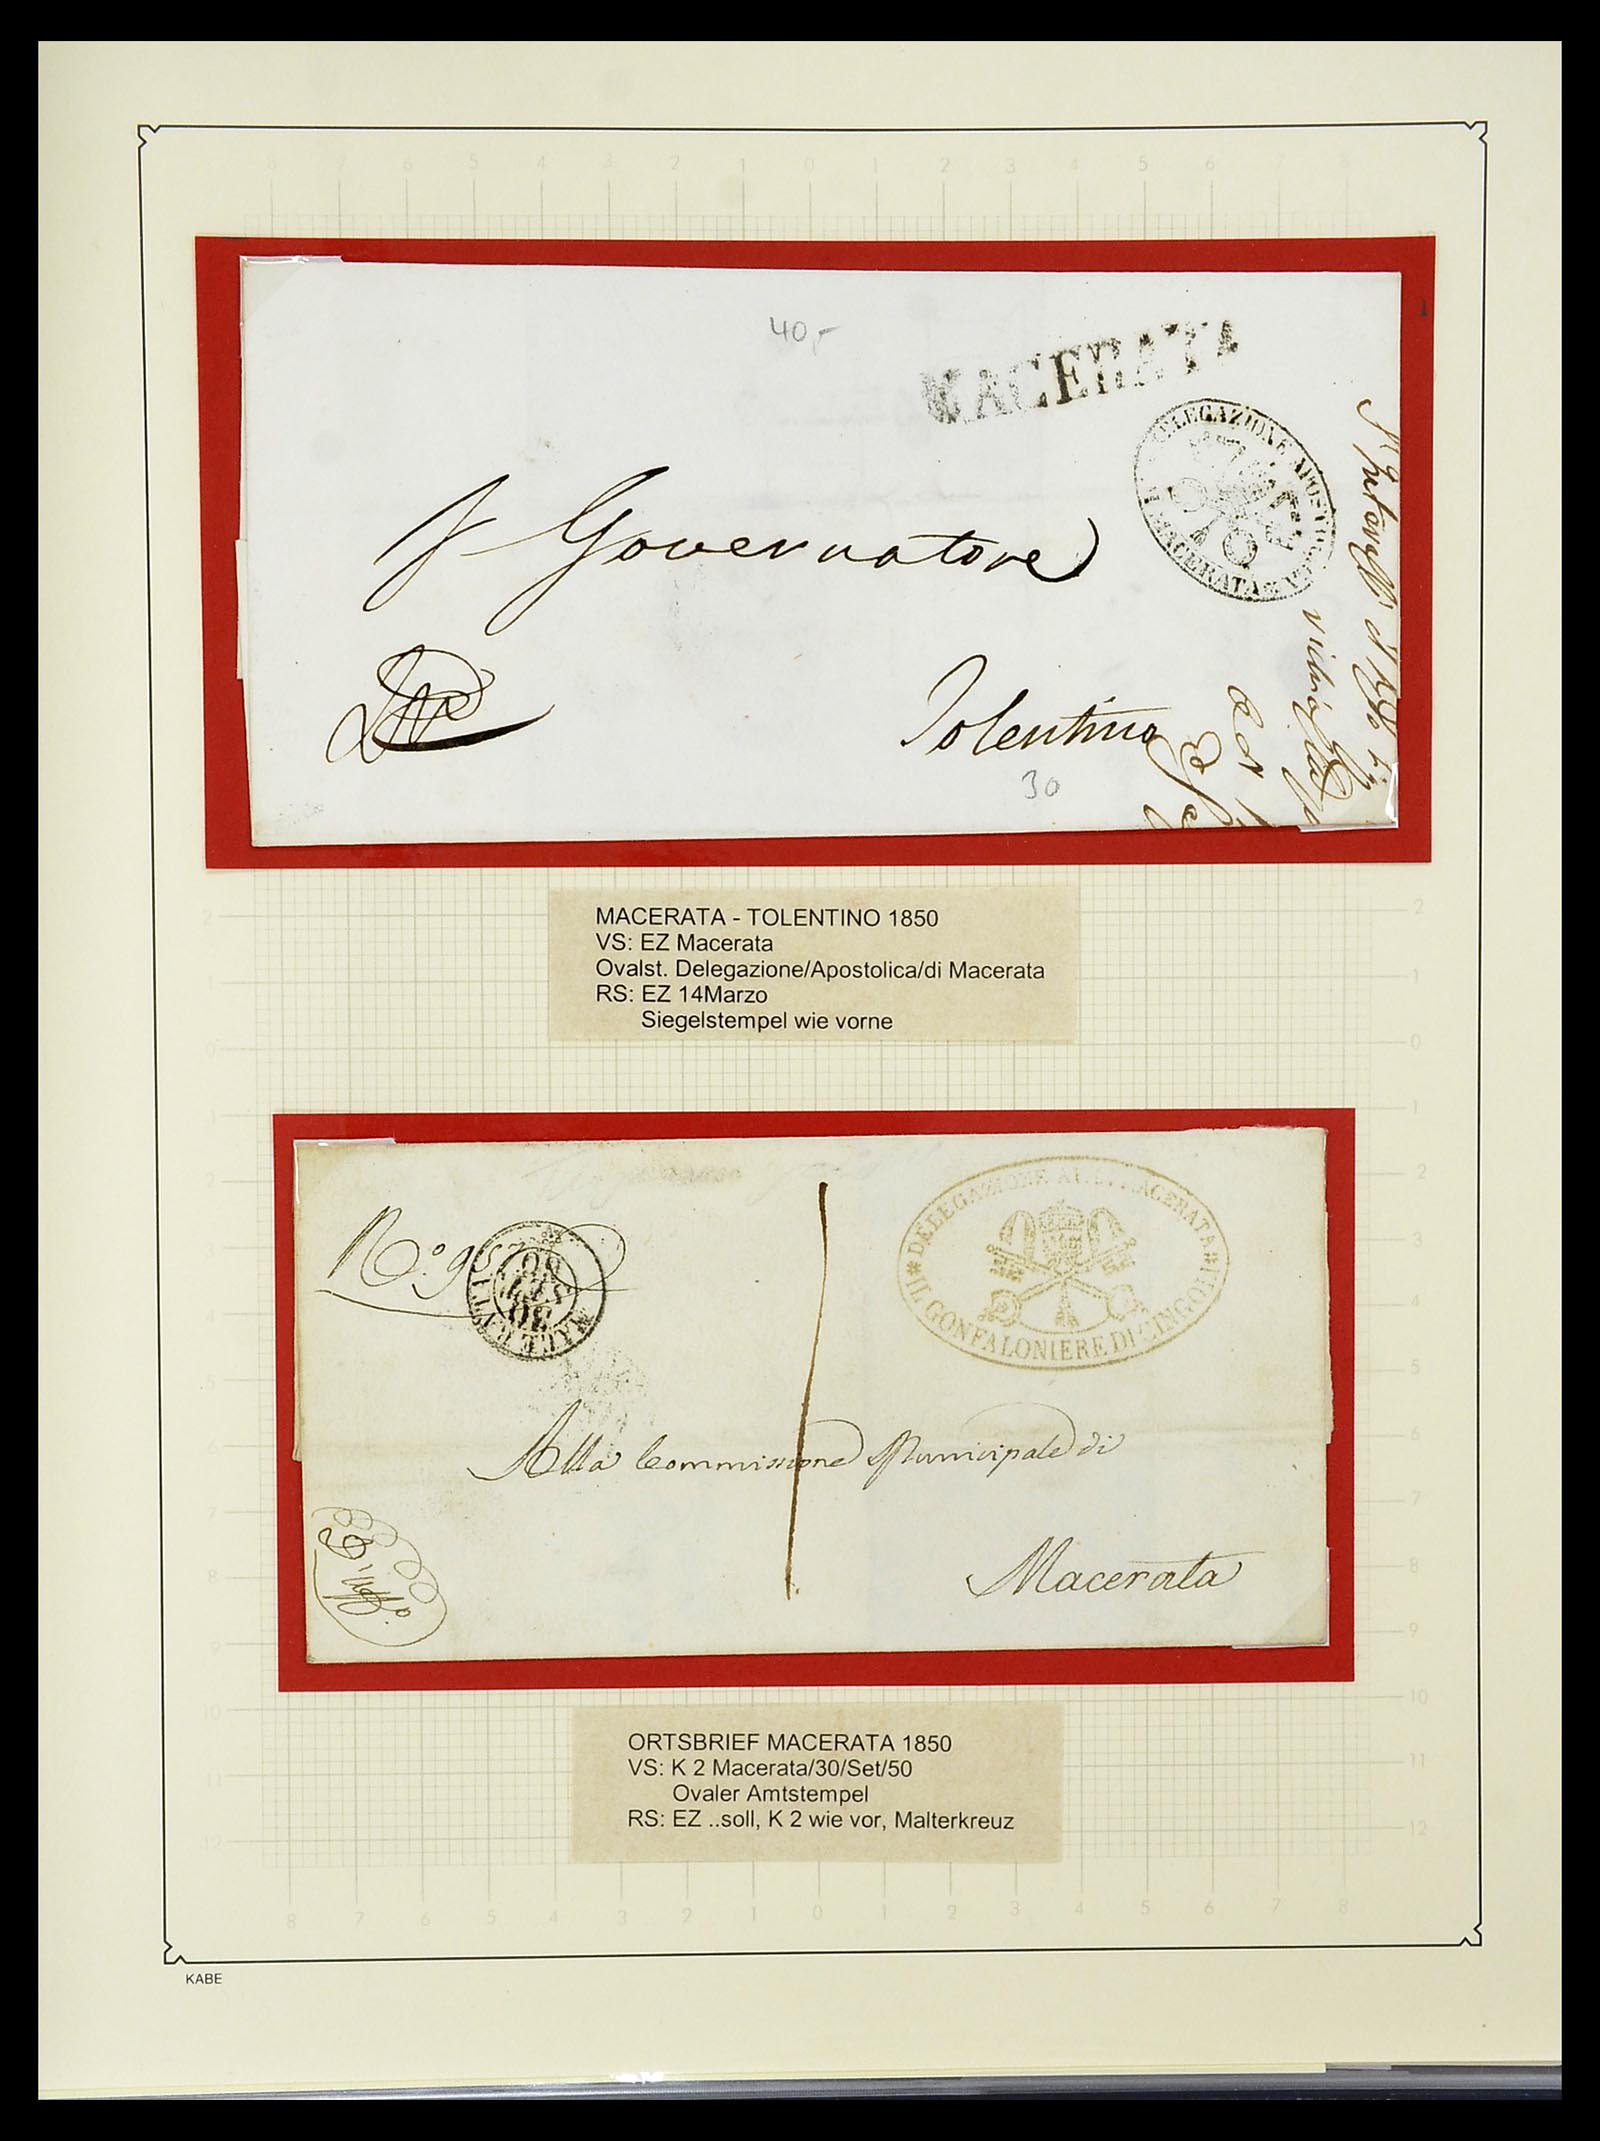 40,-
MACERATA
DELEGAZIONE APOSTOLICA
MACERATA
Governatore
Tolentino
30
MACERATA - TOLENTINO 1850
VS: EZ Macerata
Ovalst. Delegazione/Apostolica/di Macerata
RS: EZ 14Marzo
Siegelstempel wie vorne
N.º 957
MACERATA
30
SET
50
DELEGAZIONE AP. DI MACERATA
IL GONFALONIERE DI CINGOLI
1
Alla Commissione Municipale di
Macerata
ORTSBRIEF MACERATA 1850
VS: K 2 Macerata/30/Set/50
Ovaler Amtstempel
RS: EZ ..soll, K 2 wie vor, Malterkreuz
KABE